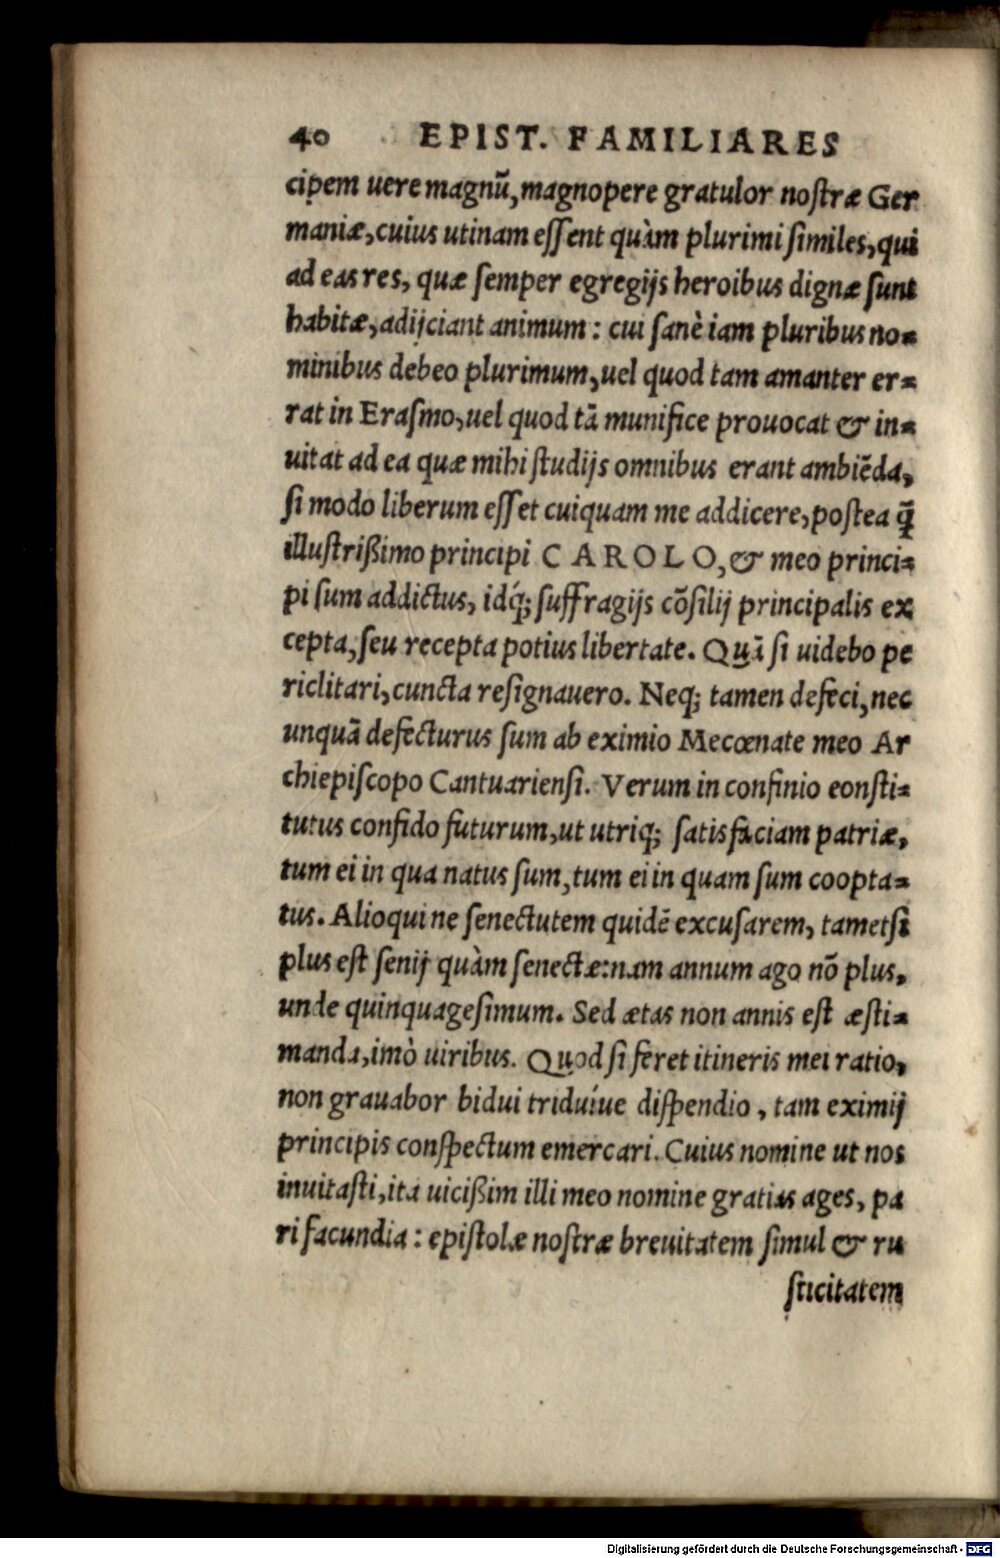 40 EPIST. FAMILIARES
cipem uere magnũ, magnopere gratulor nostræ Ger
maniæ, cuius utinam essent quàm plurimi similes, qui
ad eas res, quæ semper egregijs heroibus dignæ sunt
habitæ, adijciant animum: cui sanè iam pluribus no=
minibus debeo plurimum, uel quod tam amanter er=
rat in Erasmo, uel quod tã munifice prouocat & in=
uitat ad ea quæ mihi studijs omnibus erant ambiẽda,
si modo liberum esset cuiquam me addicere, postea q̃
illustrißimo principi CAROLO, & meo princi=
pi sum addictus, idq́; suffragijs cõsilij principalis ex
cepta, seu recepta potius libertate. Quã si uidebo pe
riclitari, cuncta resignauero. Neq; tamen defeci, nec
unquã defecturus sum ab eximio Mecœnate meo Ar
chiepiscopo Cantuariensi. Verum in confinio eonsti=
tutus confido futurum, ut utriq; satisfaciam patriæ,
tum ei in qua natus sum, tum ei in quam sum coopta=
tus. Alioqui ne senectutem quidẽ excusarem, tametsi
plus est senij quàm senectæ: nam annum ago nõ plus,
unde quinquagesimum. Sed ætas non annis est æsti=
manda, imò uiribus. Quod si feret itineris mei ratio,
non grauabor bidui triduíue dispendio, tam eximij
principis conspectum emercari. Cuius nomine ut nos
inuitasti, ita uicißim illi meo nomine gratias ages, pa
ri facundia: epistolæ nostræ breuitatem simul & ru
sticitatem
Digitalisierung gefördert durch die Deutsche Forschungsgemeinschaft - DFG